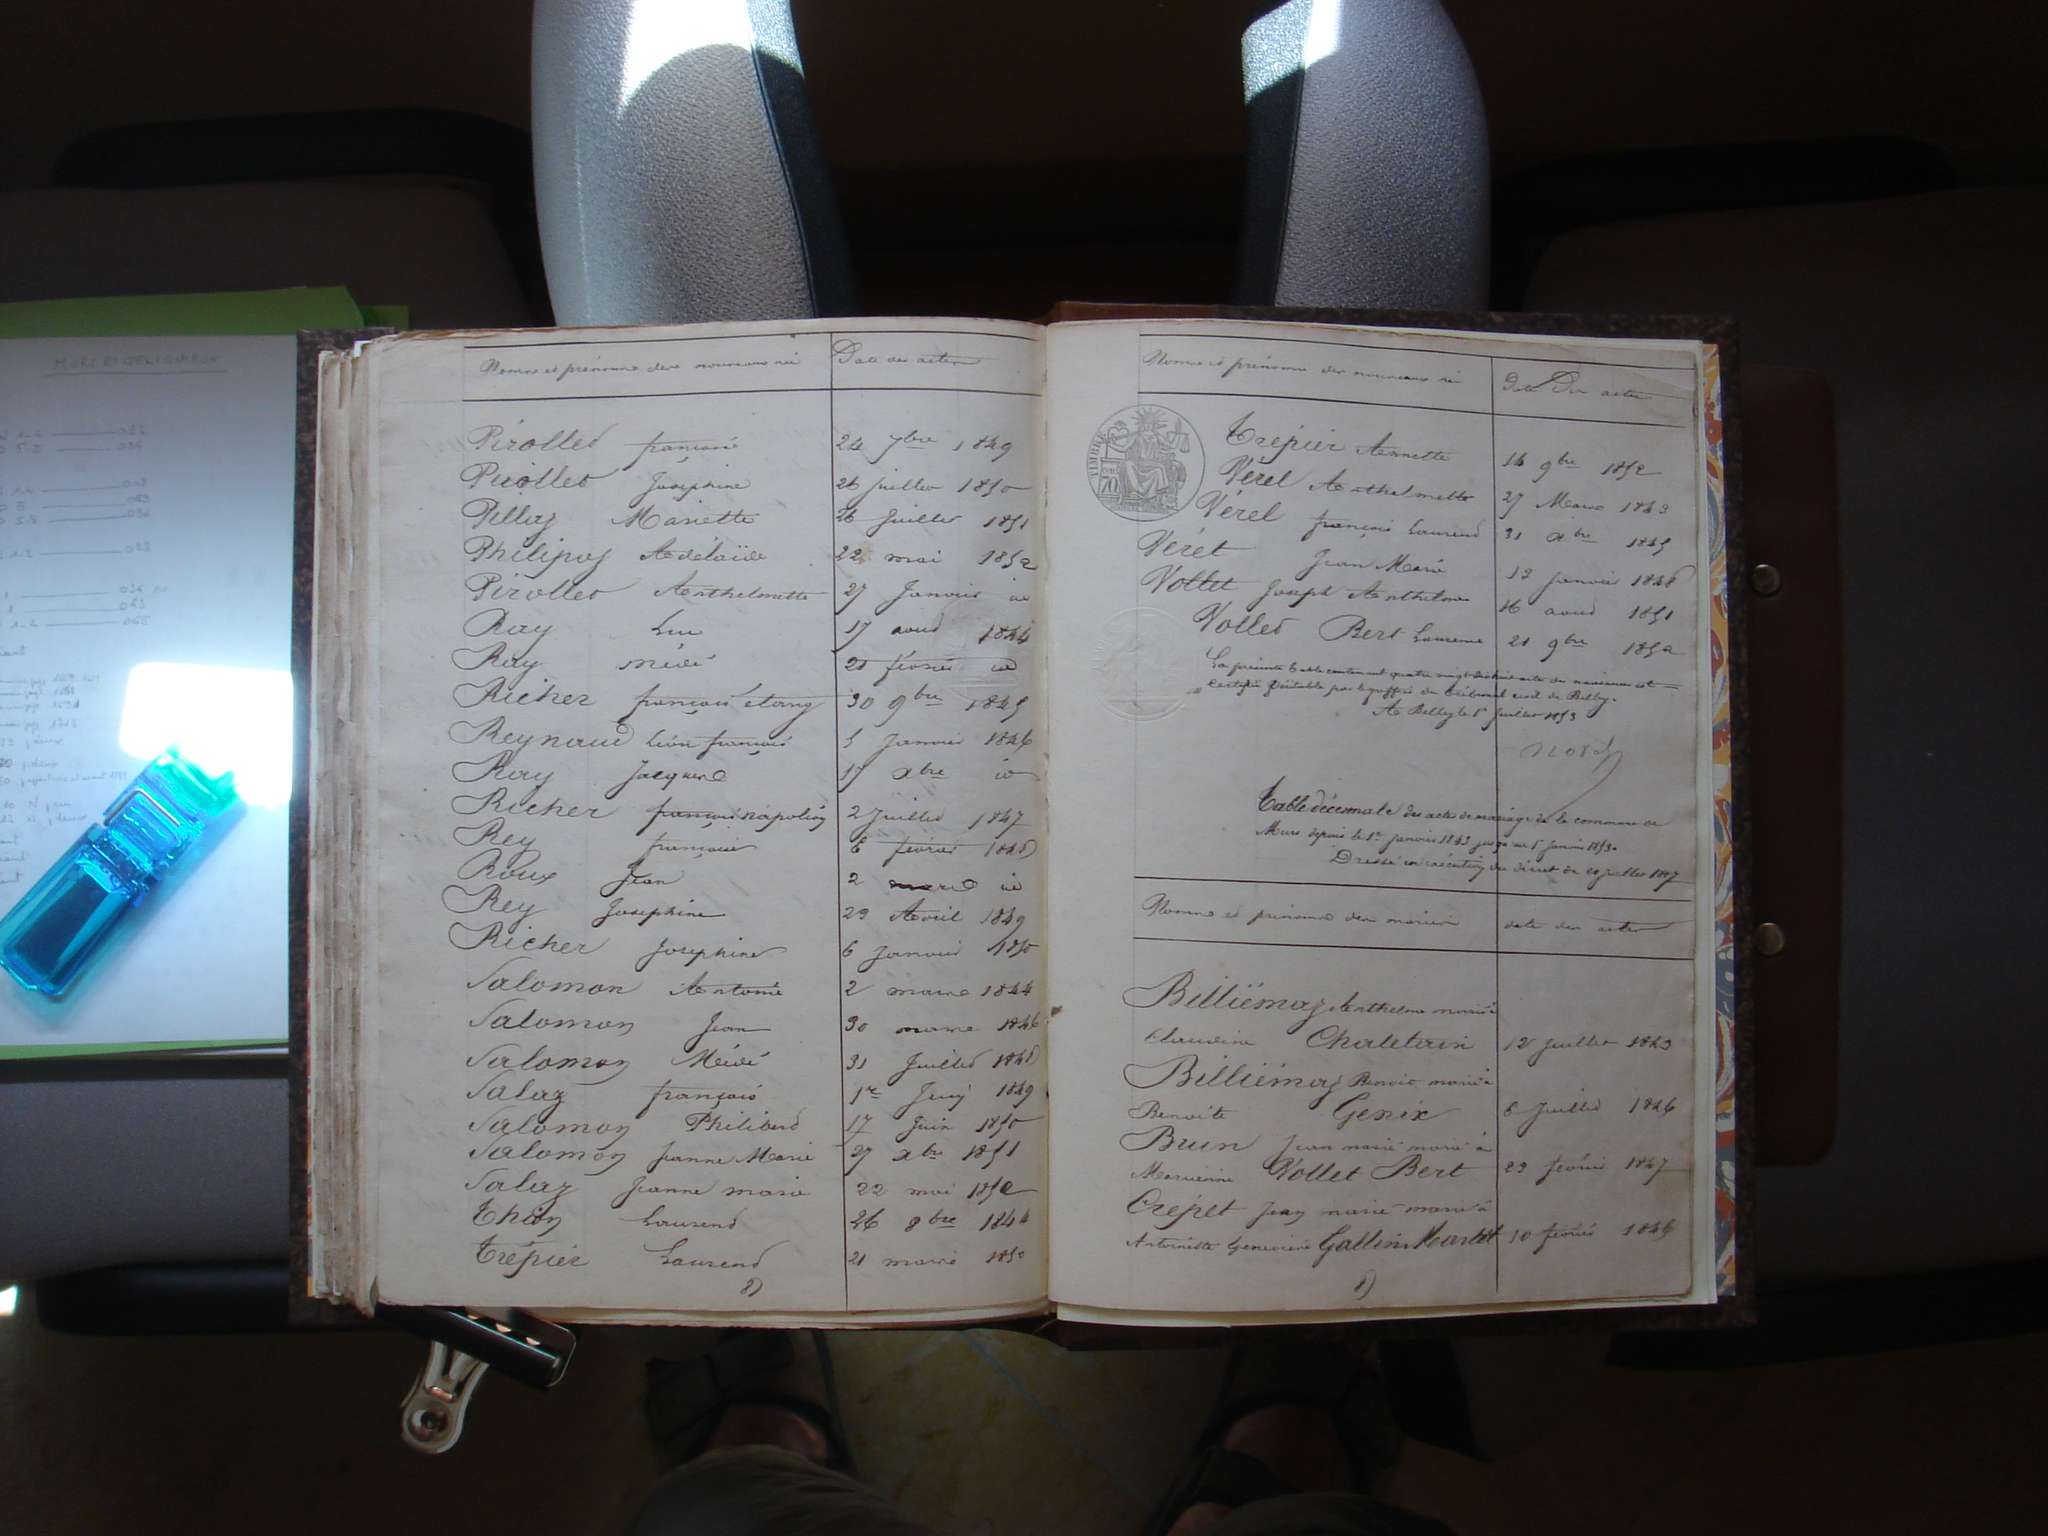 MURS ET GELIGNIEUX
Noms et prénoms des nouveaux né
Date des actes
Pirollet françois 24 7bre 1849
Pirollet Joséphine 26 juillet 1850
Pillaz Mariette 26 Juillet 1851
Philipoz Adélaïde 22 mai 1852
Pirollet Anthelmette 27 Janvier id
Ray Luc 17 aout 1844
Ray Médé 21 février id
Richer françois étang 30 9bre 1845
Reynaud Léon françois 5 Janvier 1846
Ray Jacques 17 xbre id
Richer françois napoléon 2 Juillet 1847
Rey françois 6 février 1848
Roux Jean 2 mars id
Rey Joséphine 29 Avril 1849
Richer Joséphine 6 Janvier 1850
Salomon Antoine 2 mars 1844
Salomon Jean 30 mars 1846
Salomon Médé 31 Juillet 1848
Salaz françois 1er Juin 1849
Salomon Philiberd 17 Juin 1850
Salomon Jeanne Marie 27 xbre 1851
Salaz Jeanne marie 22 mai 1852
Laurend 26 8bre 1844
Trépier Laurend 21 mars 1850
Noms et prénoms des nouveaux né
Date Des actes
TIMBRE
70
Trépier Annette 14 9bre 1852
Vérel Anthelmette 27 Mars 1843
Vérel françois Laurend 31 xbre 1845
Véret Jean Marie 13 janvier 1848
Vollet Joseph Anthelme 16 aoud 1851
Vollet Bert Laurence 21 9bre 1852
La présente table contenant quatre vingt dix huit actes de naissances est
Certifiée Véritable par le greffier du tribunal civil de Belley.
A Belley le 1r Juillet 1853
Table décennale des actes de mariage de la commune de
Murs depuis le 1er Janvier 1843 jusqu'au 1r Janvier 1853.
Dressé en exécution du décret du 20 juillet 1807
Noms et prénoms des mariés
date des actes
Billiémaz Anthelme marié à
Claudine Chaletain 12 Juillet 1843
Billiémaz Benoit marié à
Benoite Genix 6 Juillet 1846
Brun Jean marie marié à
Vollet Bert 23 février 1847
Crépet Jean marie marié à
Antoinette Geneviève Gallin Martel 10 février 1846